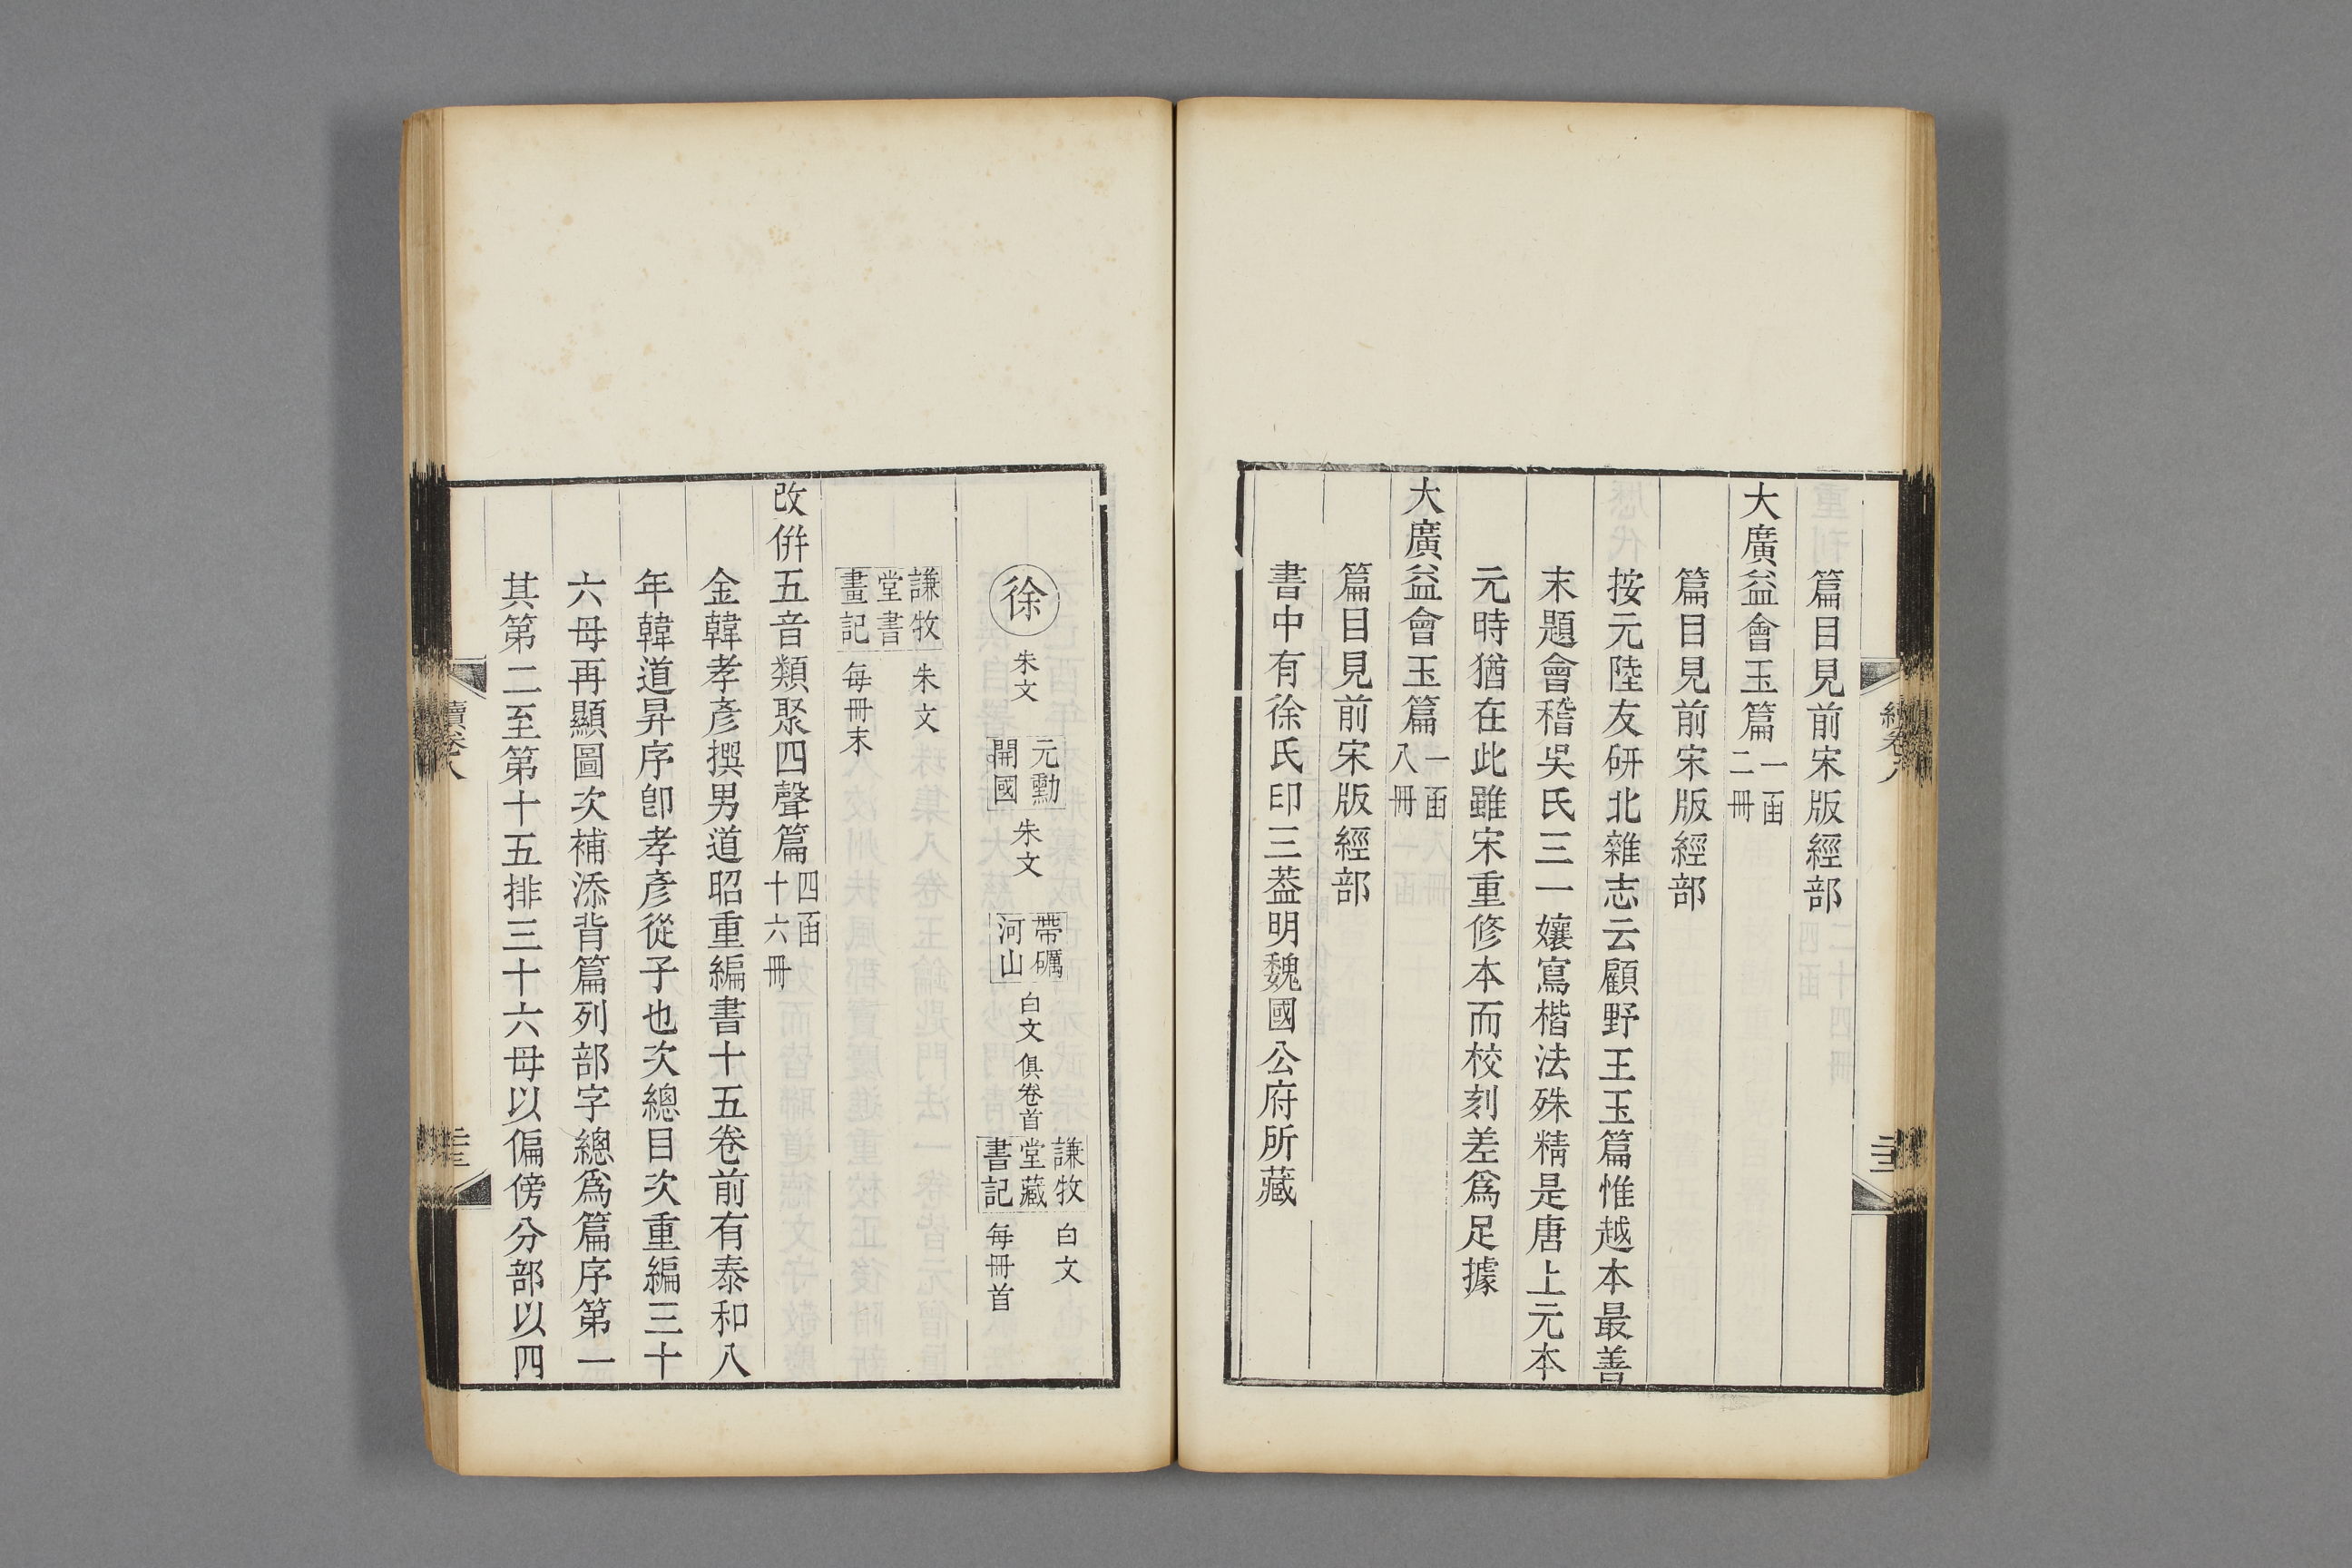 篇目見前宋版經部
大廣益會玉篇一函二冊
篇目見前宋版經部
按元陸友研北雜志云顧野王玉篇惟越本最善
末題會稽吳氏三一孃寫楷法殊精是唐上元本
元時猶在此雖宋重修本而校刻差爲足據
大廣益會玉篇一函八冊
篇目見前宋版經部
書中有徐氏印三葢明魏國公府所藏
徐 朱文 元勳開國 朱文 帶礪河山 白文 俱卷首 謙牧堂藏書記 白文 每冊首
謙牧堂書畫記 朱文 每冊末
改併五音類聚四聲篇四函十六冊
金韓孝彥撰男道昭重編書十五卷前有泰和八
年韓道昇序卽孝彥從子也次總目次重編三十
六母再顯圖次補添背篇列部字總爲篇序第一
其第二至第十五排三十六母以偏傍分部以四
續卷八